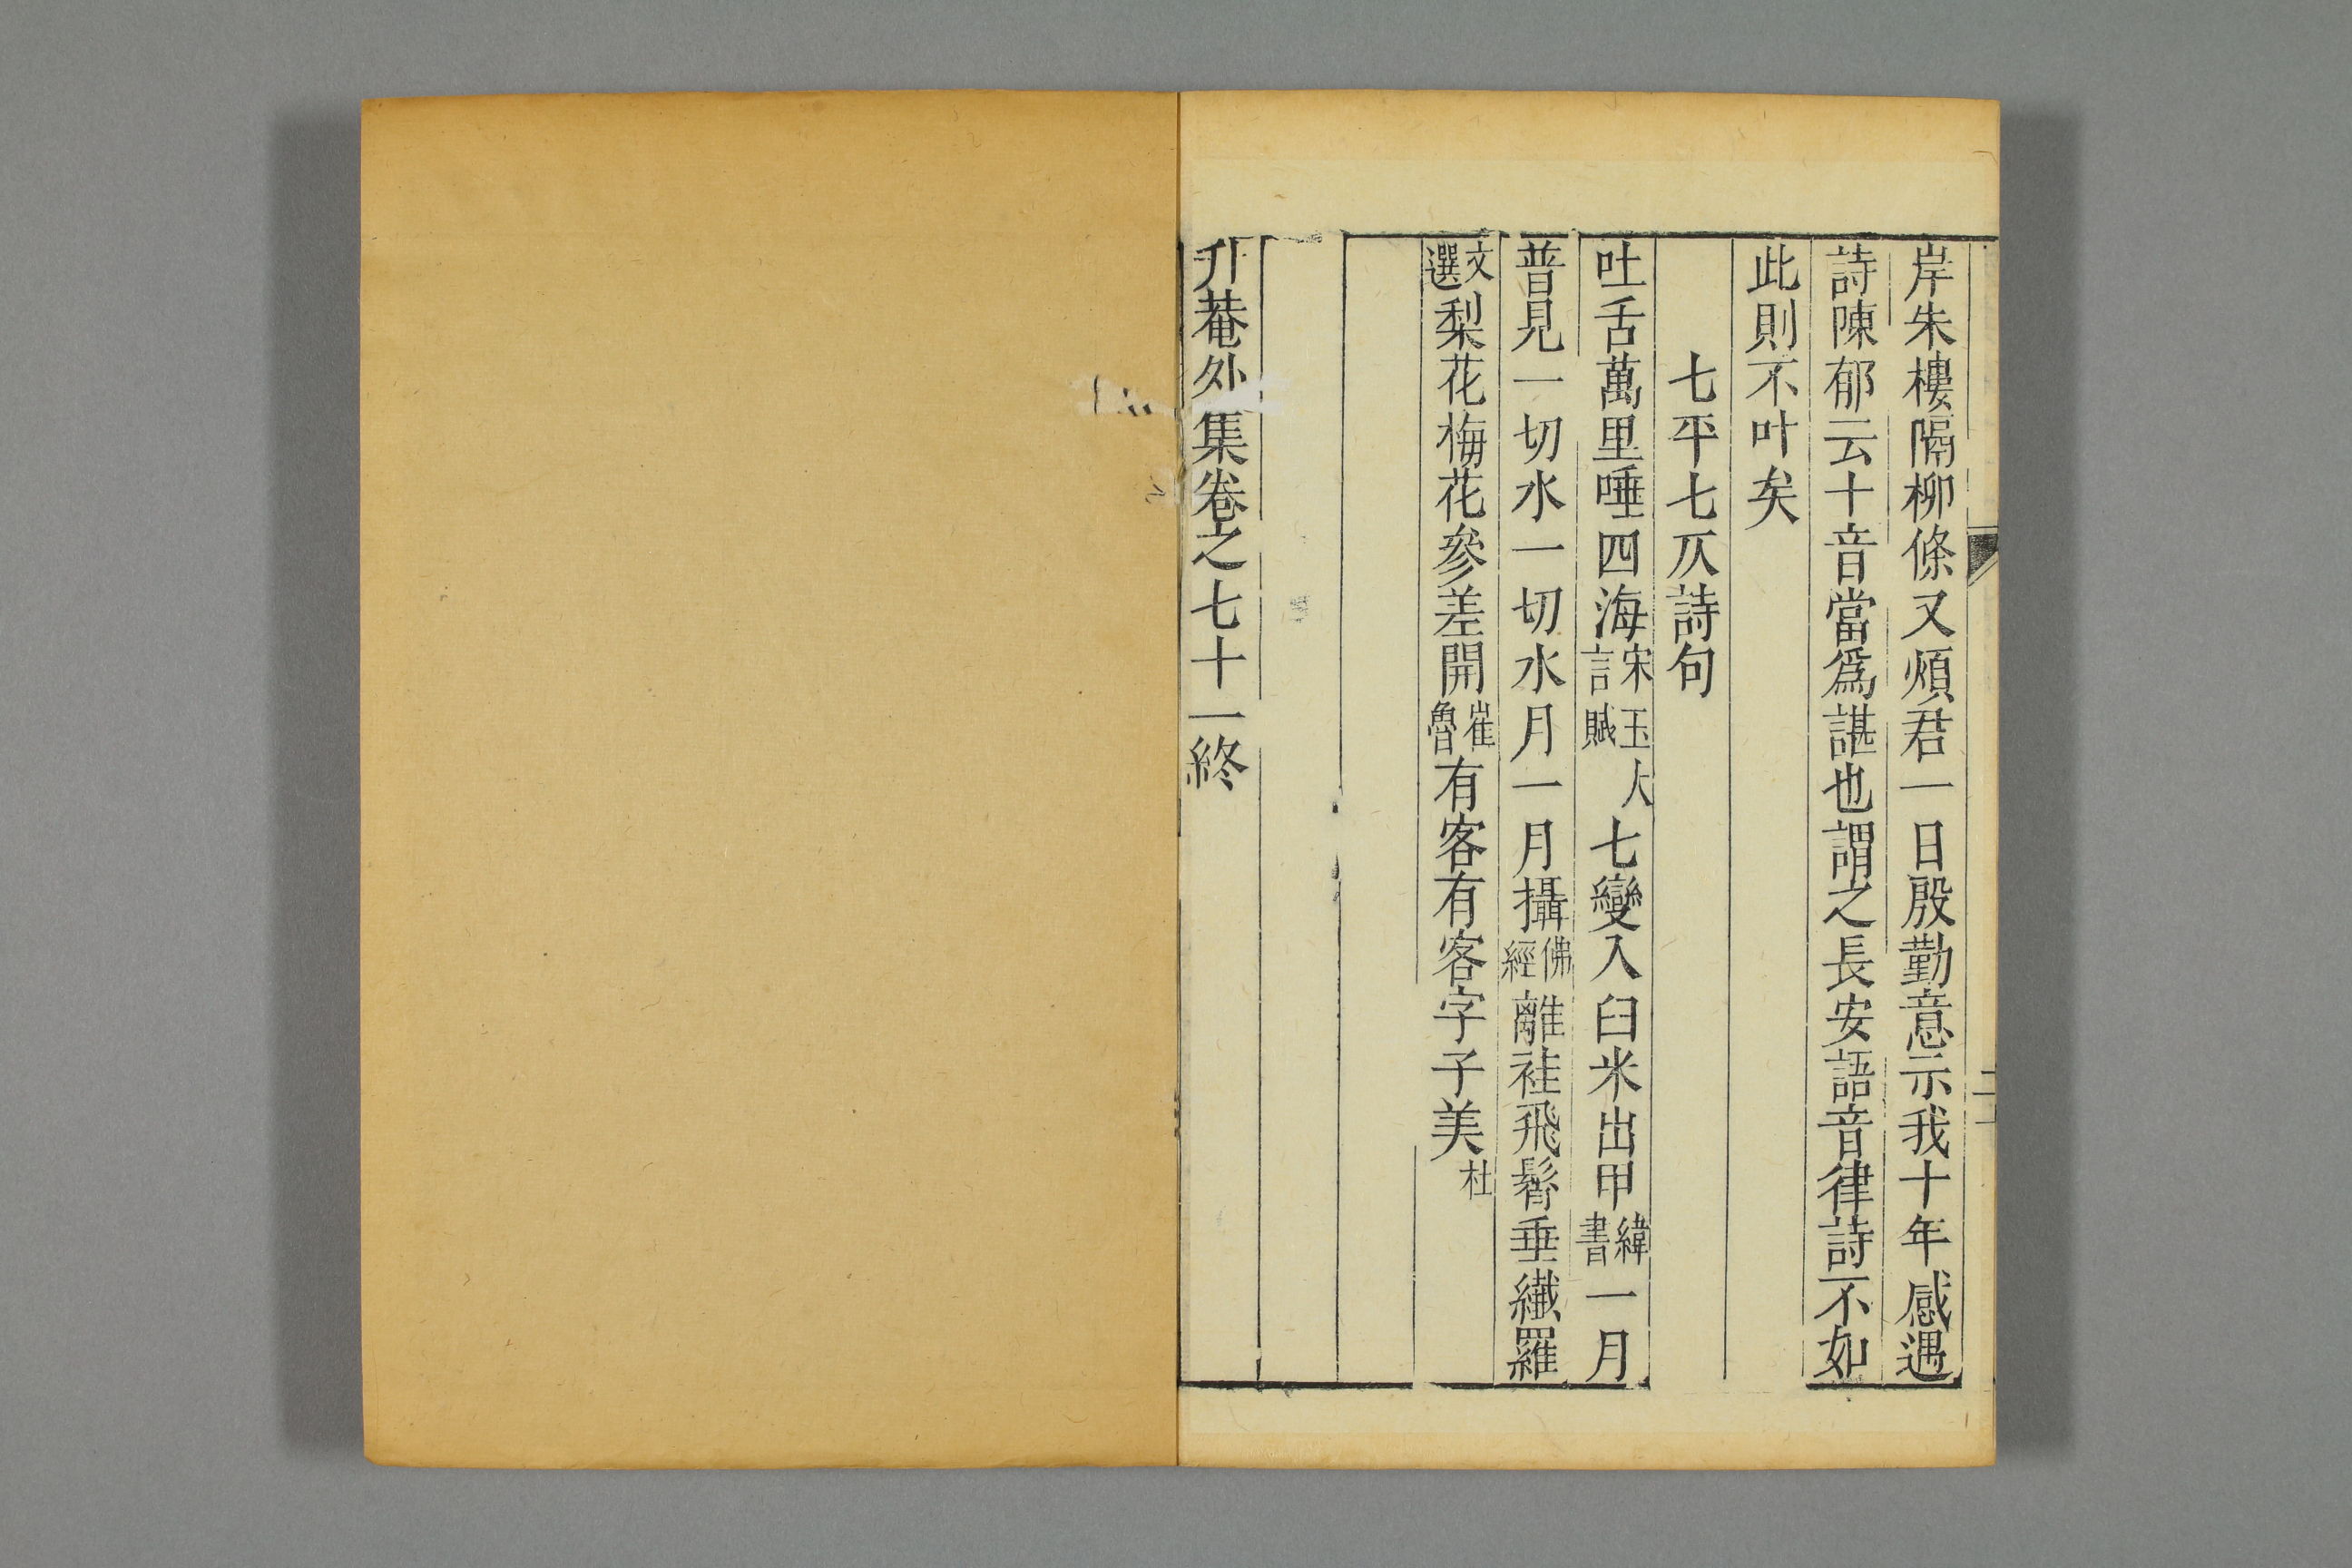 岸朱樓隔柳條又煩君一日殷勤意示我十年感遇
詩陳郁云十音當爲諶也謂之長安語音律詩不如
此則不叶矣
七平七仄詩句
吐舌萬里唾四海宋玉大言賦七變入臼米出甲緯書一月
普見一切水一切水月一月攝佛經離袿飛髾垂纖羅
文選梨花梅花參差開崔魯有客有客字子美杜
升菴外集卷之七十一終